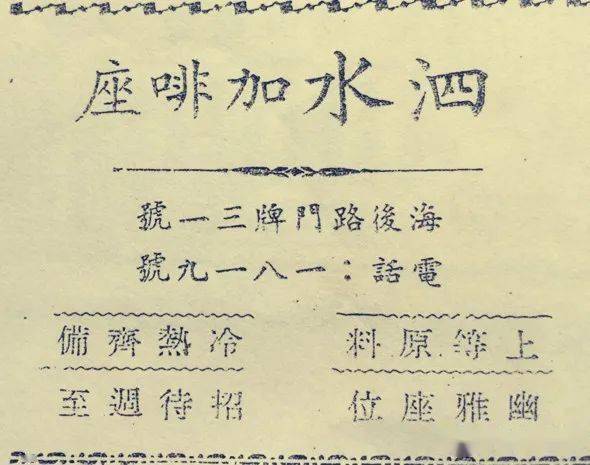 泗水加啡座
海後路門牌三一號
電話：一八一九號
上等原料
冷熱齊備
幽雅座位
招待週至